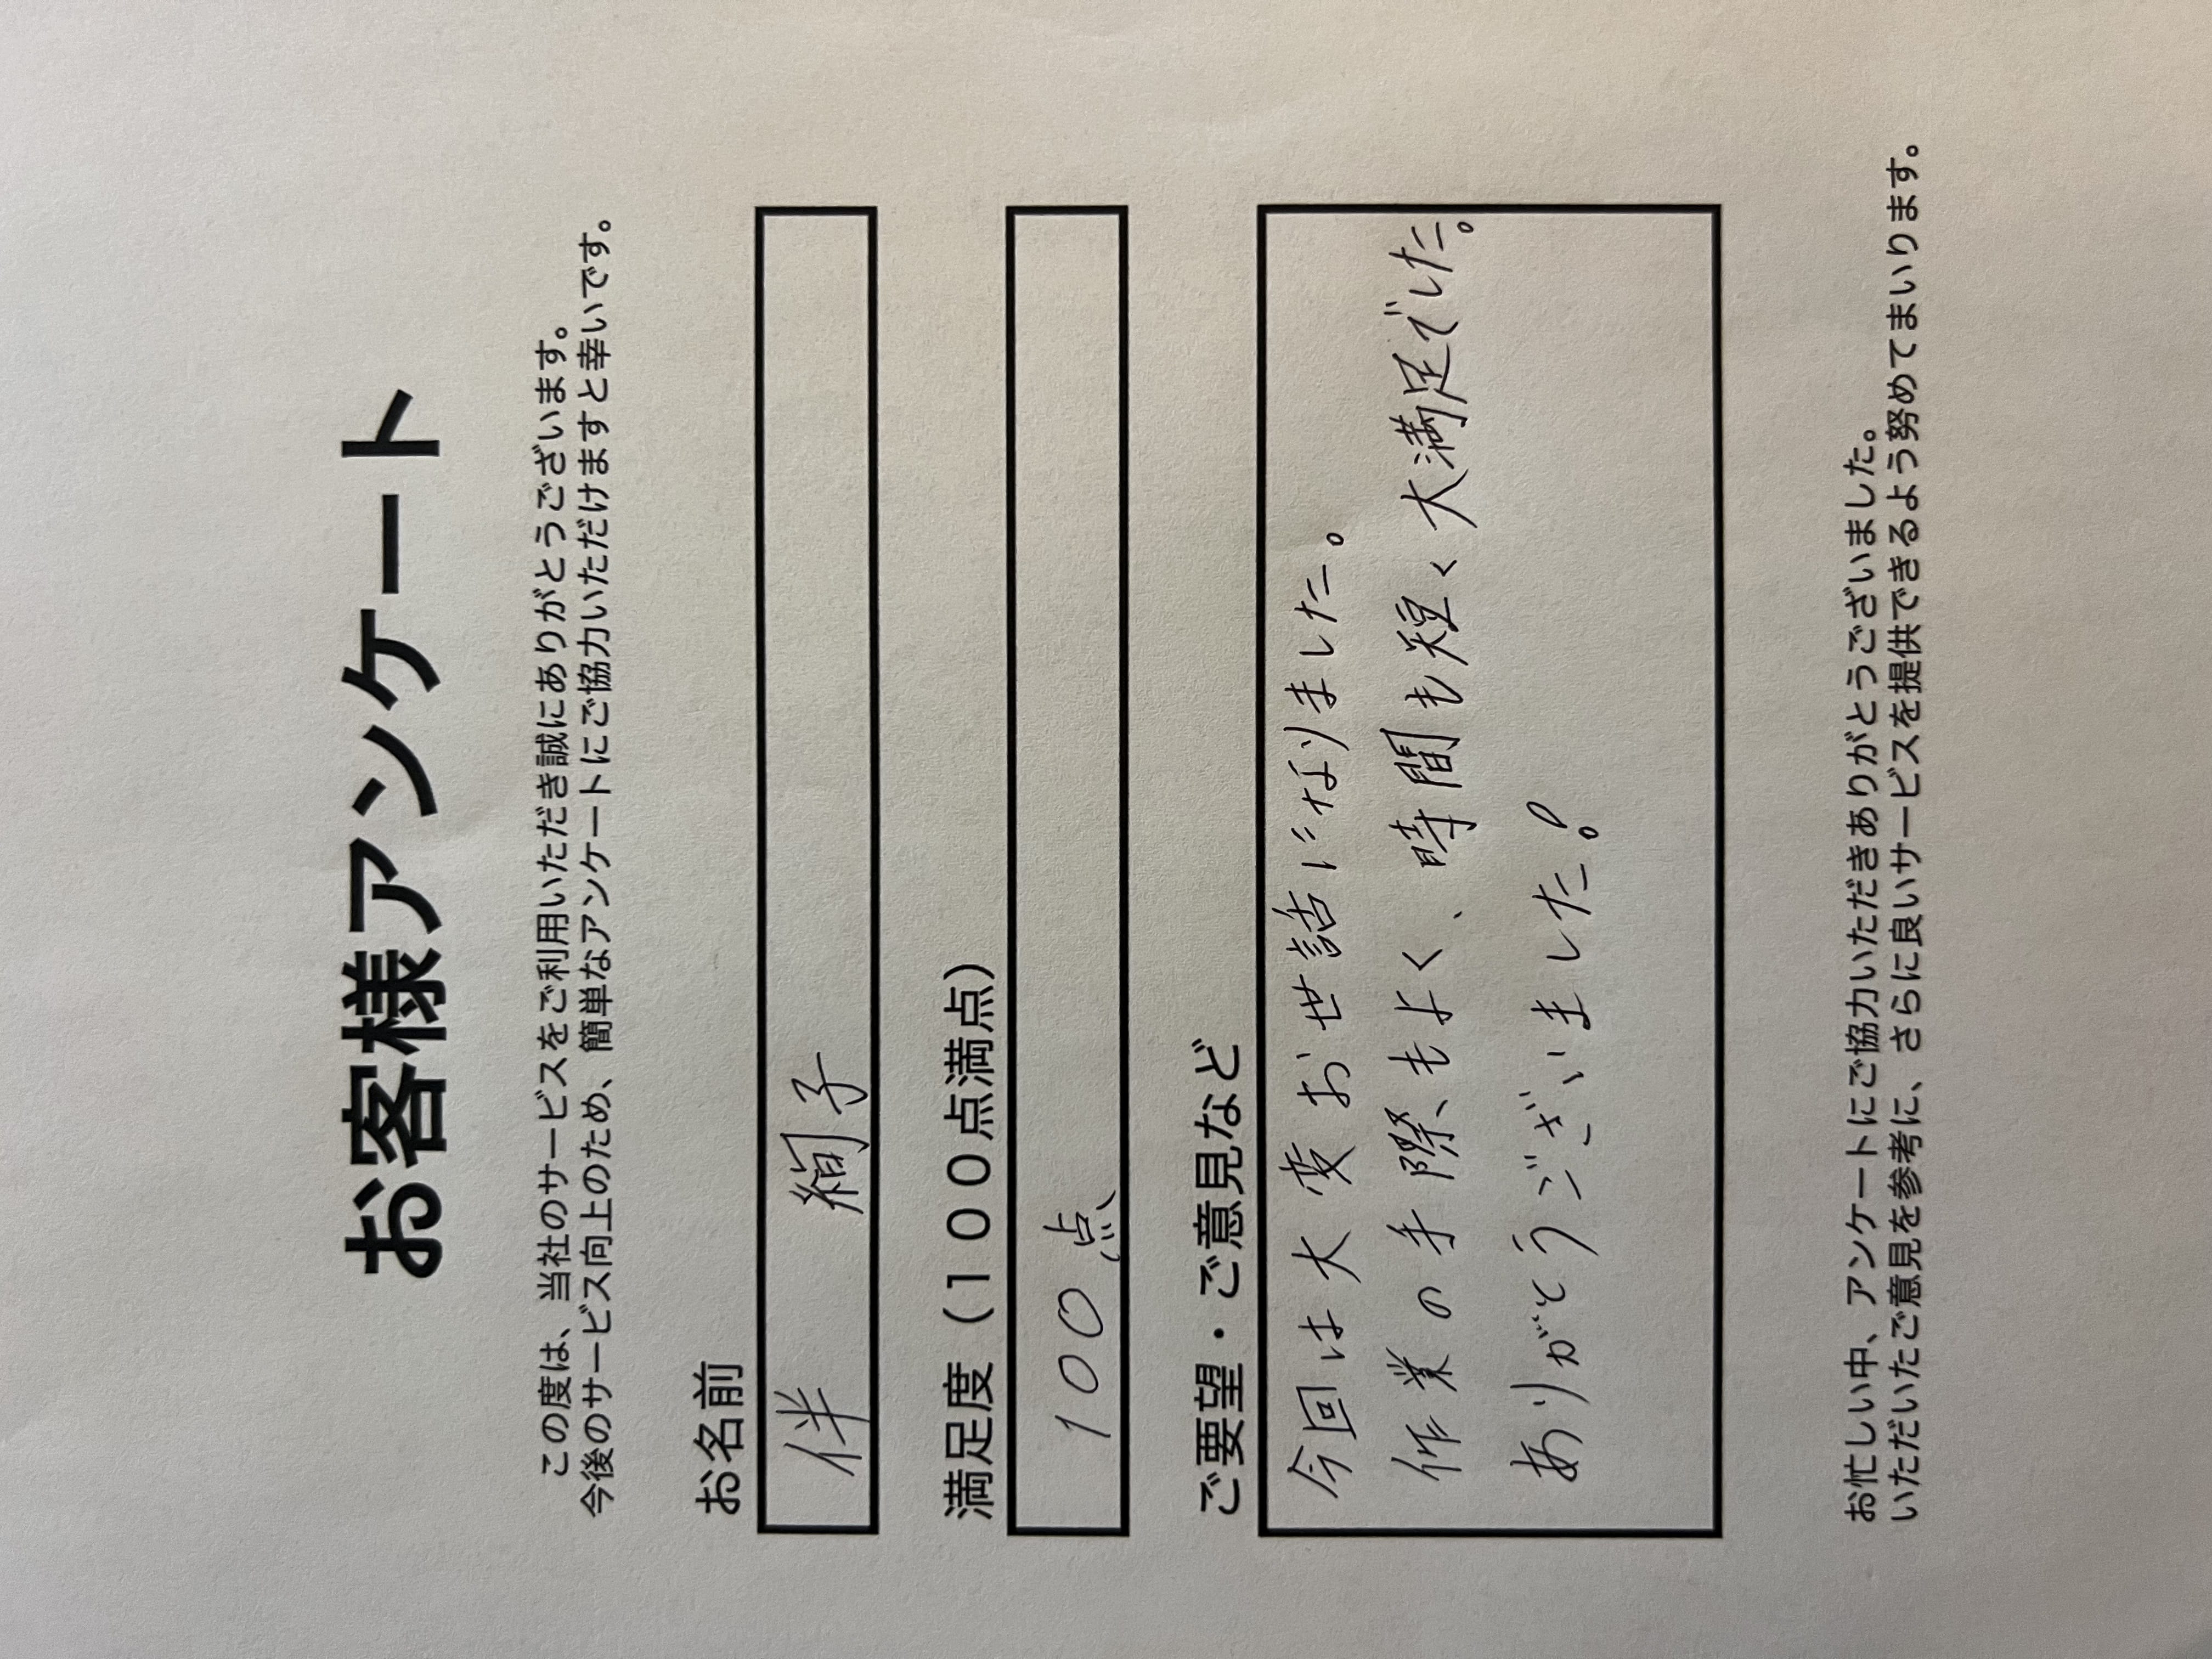 お客様アンケート
この度は、当社のサービスをご利用いただき誠にありがとうございます。
今後のサービス向上のため、簡単なアンケートにご協力いただけますと幸いです。
お名前
伴 絢子
満足度（１００点満点）
100点
ご要望・ご意見など
今回は大変お世話になりました。
作業の手際もよく、時間も短く大満足でした。
ありがとうございました！
お忙しい中、アンケートにご協力いただきありがとうございました。
いただいたご意見を参考に、さらに良いサービスを提供できるよう努めてまいります。